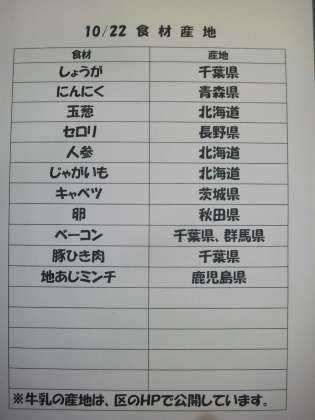 10/22 食材産地
食材 産地
しょうが 千葉県
にんにく 青森県
玉葱 北海道
セロリ 長野県
人参 北海道
じゃがいも 北海道
キャベツ 茨城県
卵 秋田県
ベーコン 千葉県、群馬県
豚ひき肉 千葉県
地あじミンチ 鹿児島県
※牛乳の産地は、区のHPで公開しています。